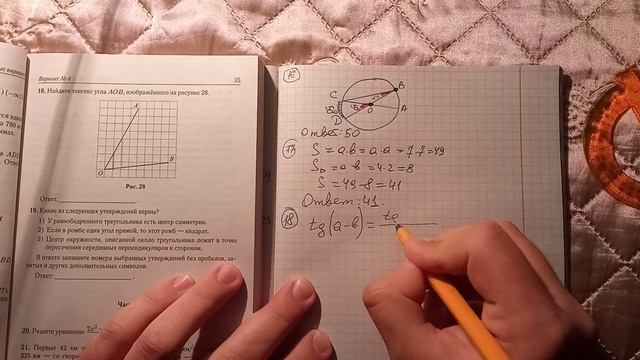 Вариант № 4
35
18. Найдите тангенс угла AOB, изображённого на рисунке 28.
A
B
O
Рис. 28
Ответ:
19. Какие из следующих утверждений верны?
1) У равнобедренного треугольника есть центр симметрии.
2) Если в ромбе один угол прямой, то этот ромб — квадрат.
3) Центр окружности, описанной около треугольника лежит в точке
пересечения серединных перпендикуляров к сторонам.
В ответе запишите номера выбранных утверждений без пробелов, за-
пятых и других дополнительных символов.
Ответ:
20. Решите уравнение
21. Первые 42 км
325 км — со скоро
16
C
B
O
A
D
Ответ: 50
17
S = a·b = a·a = 7·7 = 49
= a·b = 4·2 = 8
S = 49-8 = 41
Ответ: 41.
18
tg(a-b) = tg